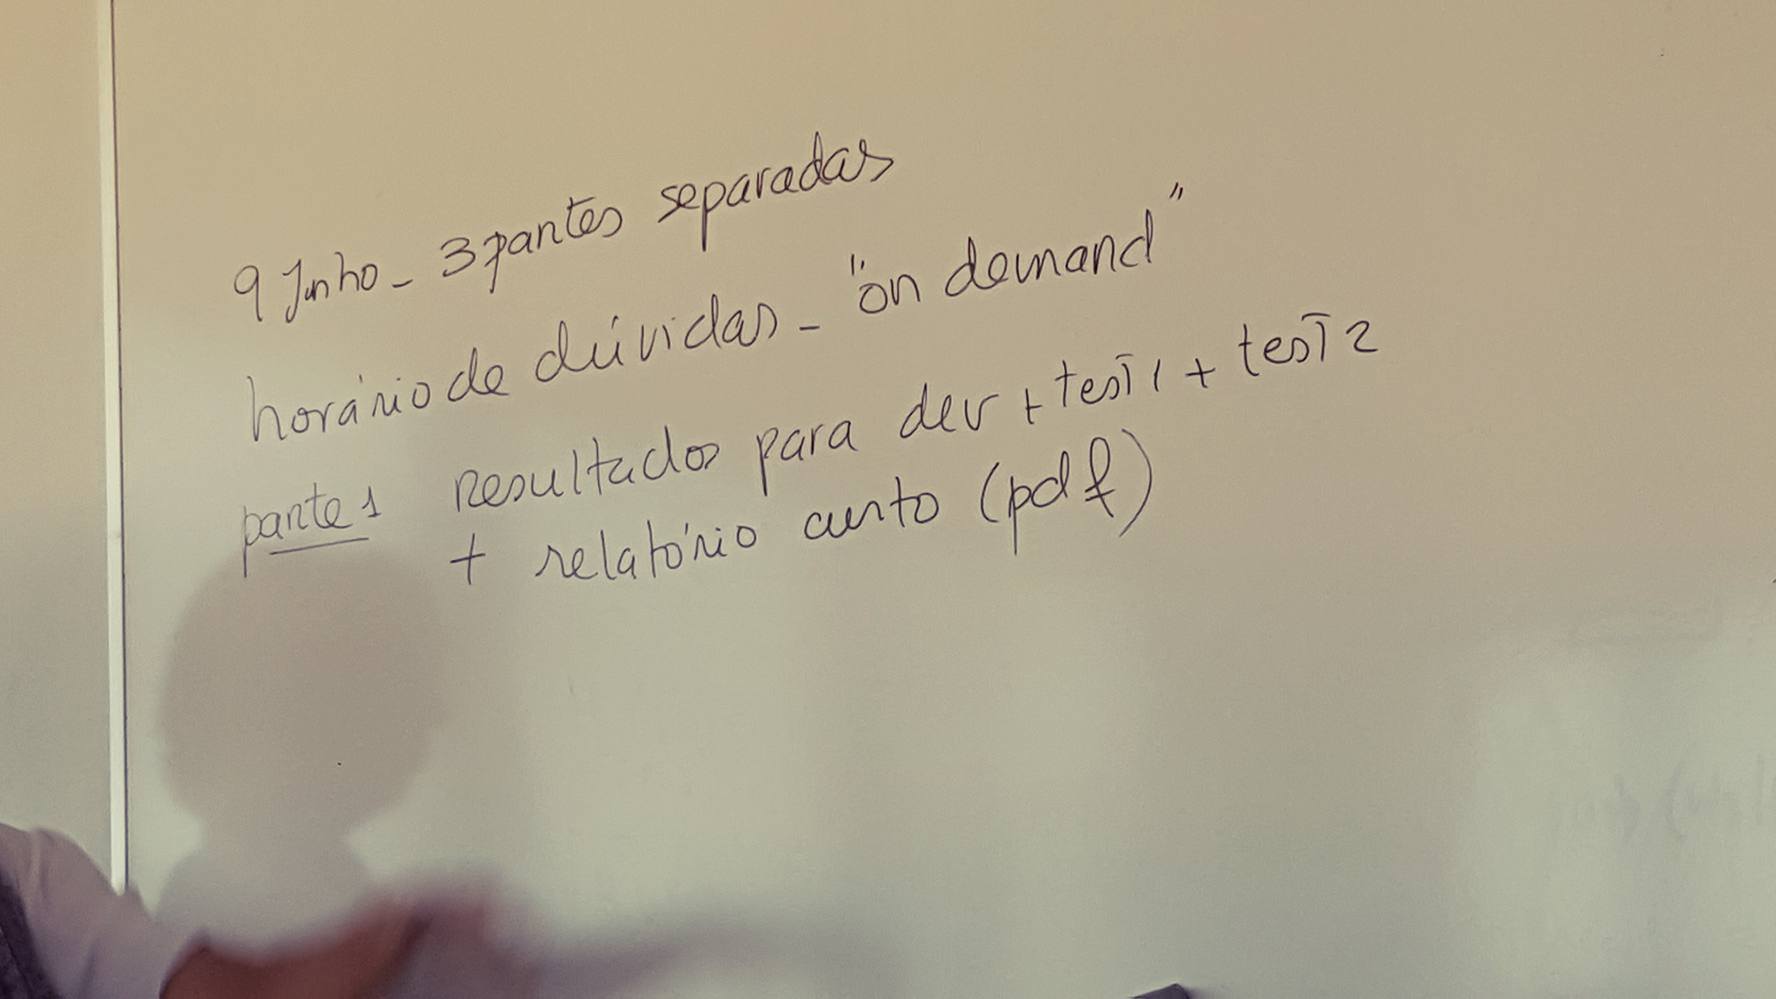 9 Junho - 3 partes separadas
horário de dúvidas - "on demand"
parte 1 resultados para dev + test 1 + test 2
+ relatório curto (pdf)